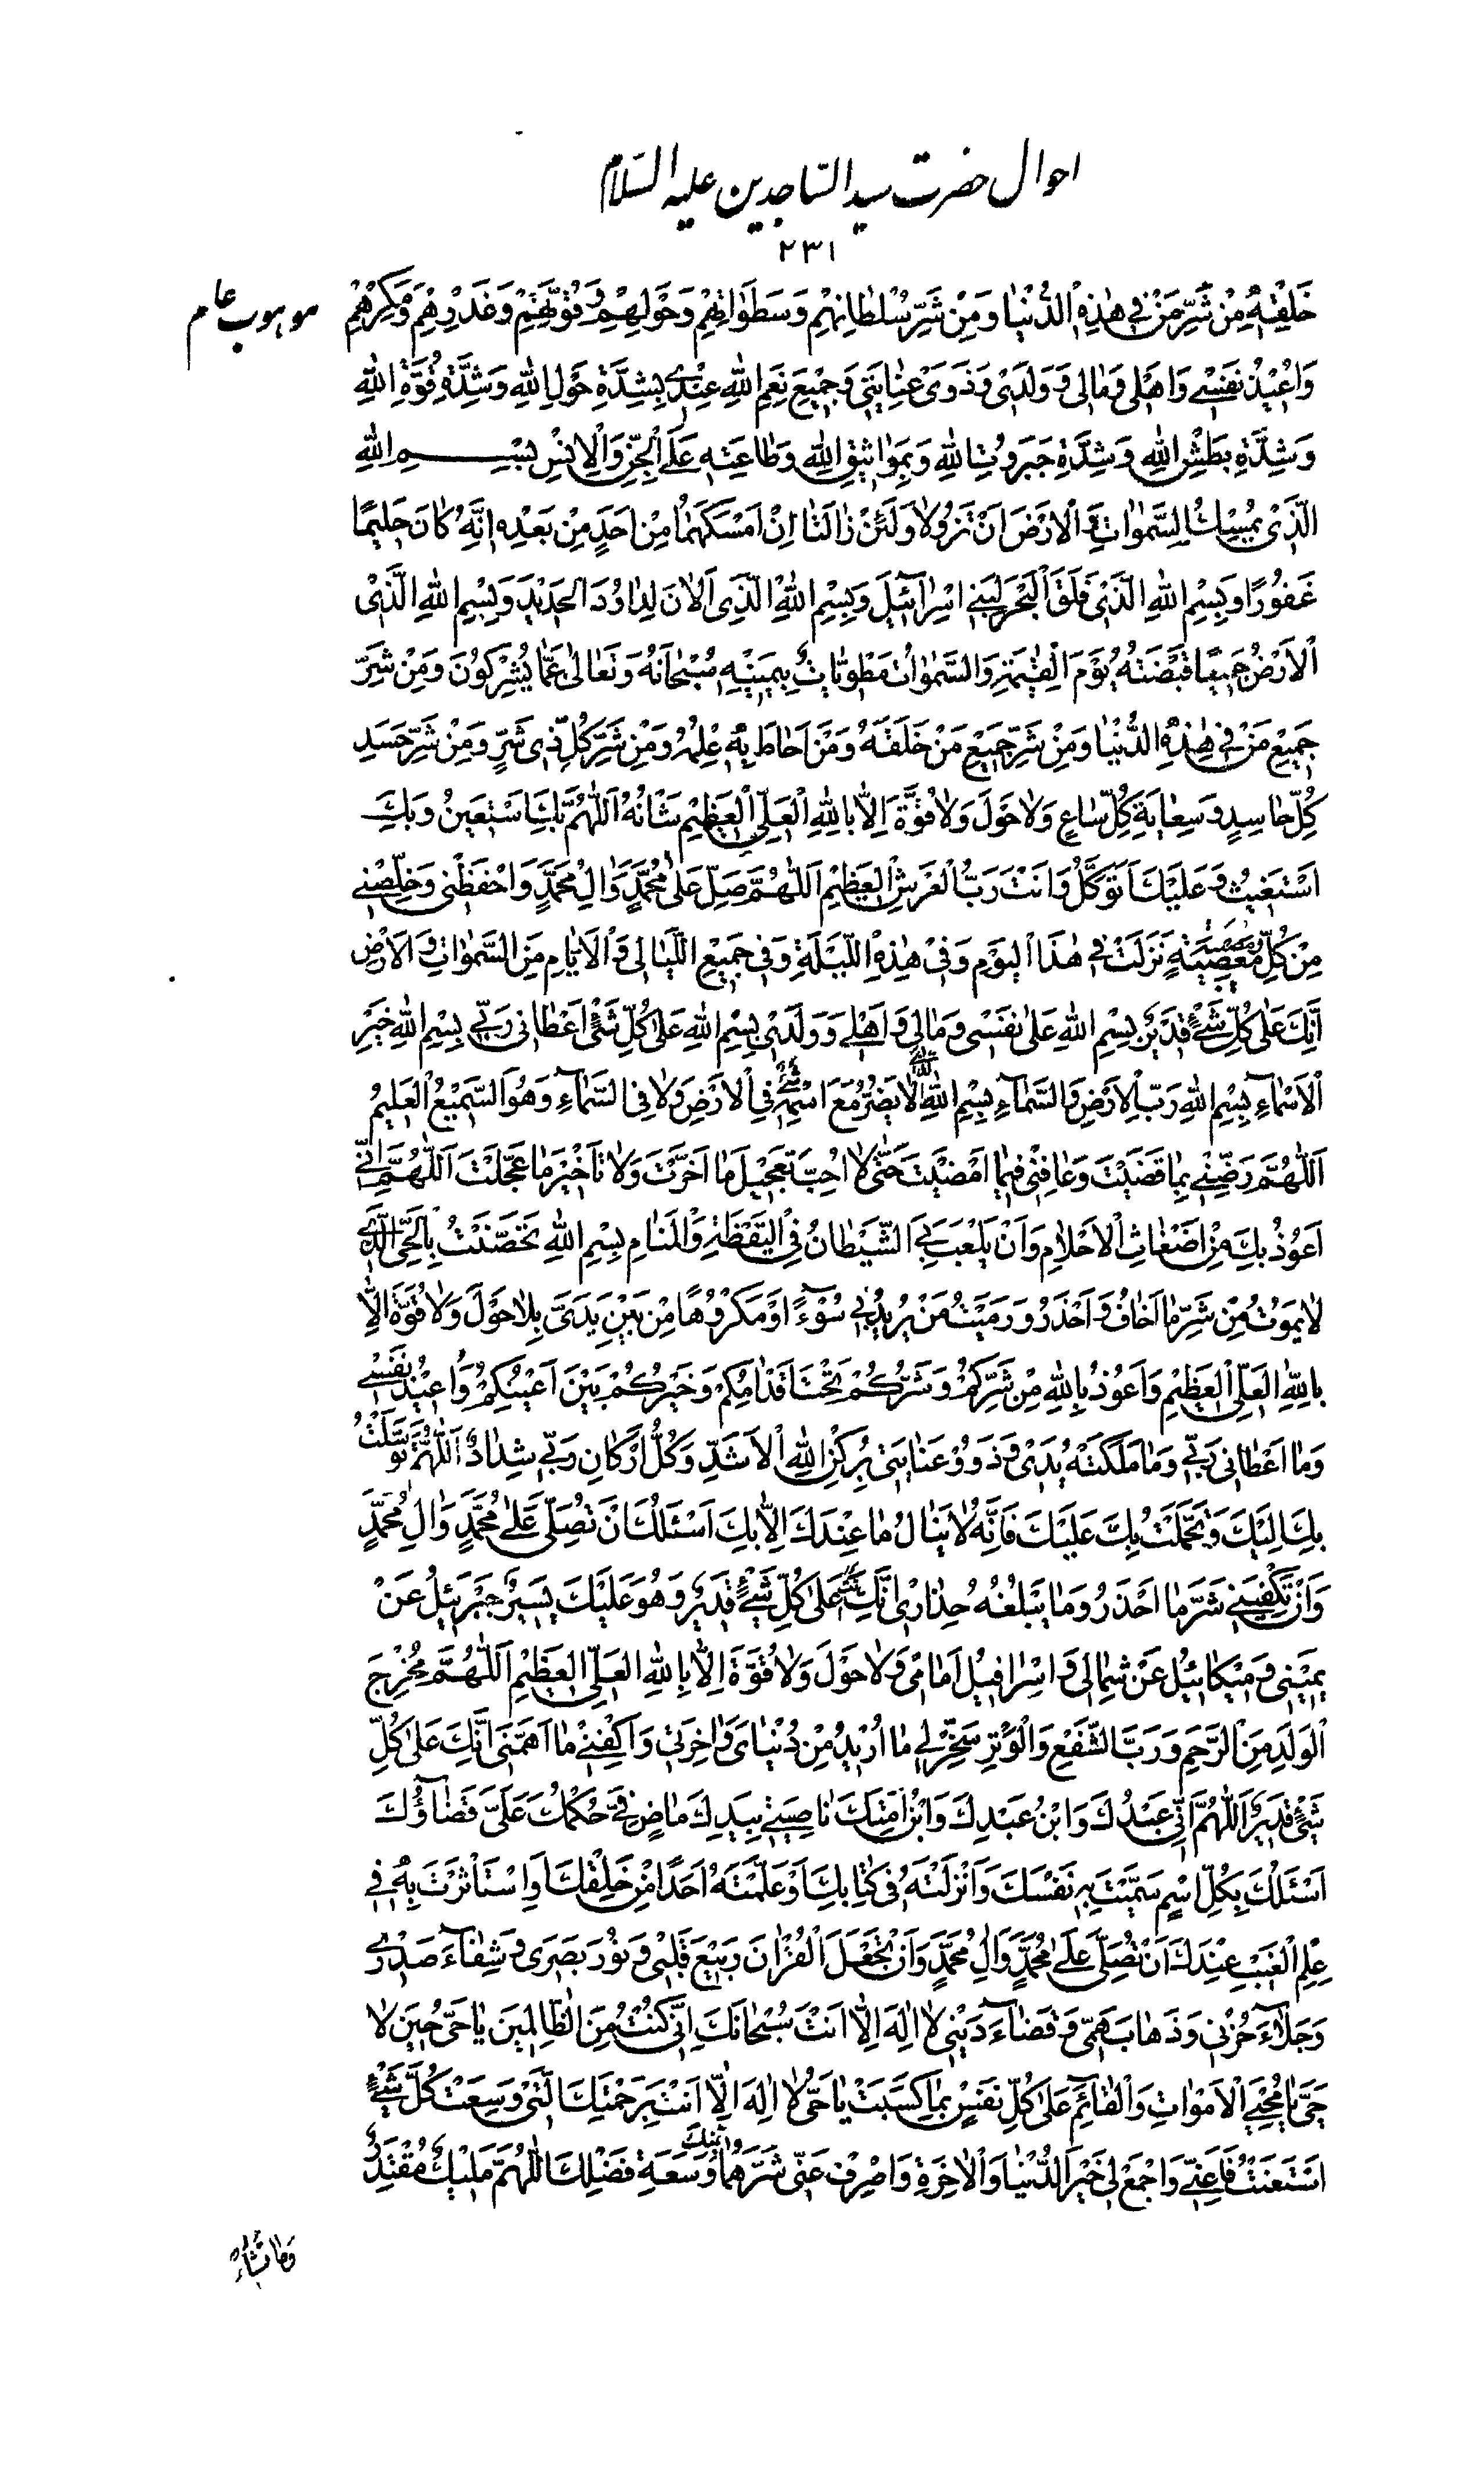 احوال حضرت سید السّاجدین علیه السّلام
۲۳۱
موهوب عام
خَلْقِهِ مِنْ شَرِّ مَنْ في هٰذِهِ الدُّنْيٰا وَمِنْ شَرِّ سُلْطٰانِهِمْ وَسَطَوٰاتِهِمْ وَحَوْلِهِمْ وَقُوَّتِهِمْ وَغَدْرِهِمْ وَمَكْرِهِمْ
وَاُعيْذُ نَفْسي وَاَهْلي وَمٰالي وَوَلَدي وَذَوي عِنٰايَتي وَجَميْعَ نِعَمِ اللهِ عِنْدي بِشِدَّةِ حَوْلِ اللهِ وَشِدَّةِ قُوَّةِ اللهِ
وَشِدَّةِ بَطْشِ اللهِ وَشِدَّةِ جَبَرُوتِ اللهِ وَبِمَوٰاثيقِ اللهِ وَطٰاعَتِهِ عَلَى الْجِنِّ وَالْاِنْسِ بِسْمِ اللهِ
الَّذي يُمْسِكُ السَّمٰوٰاتِ وَالْاَرْضَ اَنْ تَزُولٰا وَلَئِنْ زٰالَتٰا اِنْ اَمْسَكَهُمٰا مِنْ اَحَدٍ مِنْ بَعْدِهِ اِنَّهُ كٰانَ حَليمًا
غَفُورًا وَبِسْمِ اللهِ الَّذي فَلَقَ الْبَحْرَ لِبَني اِسْرٰآئيلَ وَبِسْمِ اللهِ الَّذي اَلٰانَ لِدٰاوُدَ الْحَديدَ وَبِسْمِ اللهِ الَّذي
الْاَرْضُ جَميعًا قَبْضَتُهُ يَوْمَ الْقِيٰمَةِ وَالسَّمٰوٰاتُ مَطْوِيّٰاتٌ بِيَمينِهِ سُبْحٰانَهُ وَتَعٰالىٰ عَمّٰا يُشْرِكُونَ وَمِنْ شَرِّ
جَميعِ مَنْ في هٰذِهِ الدُّنْيٰا وَمِنْ شَرِّ جَميعِ مَنْ خَلَقَهُ وَمَنْ اَحٰاطَ بِهِ عِلْمُهُ وَمِنْ شَرِّ كُلِّ ذي شَرٍّ وَمِنْ شَرِّ حَسَدِ
كُلِّ حٰاسِدٍ وَسِعٰايَةِ كُلِّ سٰاعٍ وَلٰا حَوْلَ وَلٰا قُوَّةَ اِلّٰا بِاللهِ الْعَلِيِّ الْعَظيْمِ شَانُهُ اَللّٰهُمَّ بِكَ اَسْتَعينُ وَبِكَ
اَسْتَغيثُ وَعَلَيْكَ اَتَوَكَّلُ وَاَنْتَ رَبُّ الْعَرْشِ الْعَظيْمِ اَللّٰهُمَّ صَلِّ عَلىٰ مُحَمَّدٍ وَاٰلِ مُحَمَّدٍ وَاحْفَظْني وَخَلِّصْني
مِنْ كُلِّ مَعْصِيَةٍ نَزَلَتْ في هٰذَا الْيَوْمِ وَفي هٰذِهِ اللَّيْلَةِ وَفي جَميعِ اللَّيٰالي وَالْاَيّٰامِ مِنَ السَّمٰوٰاتِ وَالْاَرْضِ
اِنَّكَ عَلىٰ كُلِّ شَيْءٍ قَديرٌ بِسْمِ اللهِ عَلىٰ نَفْسي وَمٰالي وَاَهْلي وَوَلَدي بِسْمِ اللهِ عَلىٰ كُلِّ شَيْءٍ اَعْطٰاني رَبّي بِسْمِ اللهِ خَيْرِ
الْاَسْمٰآءِ بِسْمِ اللهِ رَبِّ الْاَرْضِ وَالسَّمٰآءِ بِسْمِ اللهِ الَّذي لٰا يَضُرُّ مَعَ اسْمِهِ شَيْءٌ فِي الْاَرْضِ وَلٰا فِي السَّمٰآءِ وَهُوَ السَّميْعُ الْعَليْمُ
اَللّٰهُمَّ رَضِّني بِمٰا قَضَيْتَ وَعٰافِني فيمٰا اَمْضَيْتَ حَتّىٰ لٰا اُحِبَّ تَعْجيلَ مٰا اَخَّرْتَ وَلٰا تَأخيْرَ مٰا عَجَّلْتَ اَللّٰهُمَّ اِنّي
اَعُوذُ بِكَ مِنْ اَضْغٰاثِ الْاَحْلٰامِ وَاَنْ يَلْعَبَ بِيَ الشَّيْطٰانُ فِي الْيَقَظَةِ وَالْمَنٰامِ بِسْمِ اللهِ تَحَصَّنْتُ بِالْحَيِّ الَّذي
لٰا يَمُوْتُ مِنْ شَرِّ مٰا اَخٰافُ وَاَحْذَرُ وَرَمَيْتُ مَنْ يُريدُ بي سُوْءً اَوْ مَكْرُوْهًا مِنْ بَيْنِ يَدَيَّ بِلٰا حَوْلَ وَلٰا قُوَّةَ اِلّٰا
بِاللهِ الْعَلِيِّ الْعَظيْمِ وَاَعُوذُ بِاللهِ مِنْ شَرِّكُمْ وَشَرُّكُمْ تَحْتَ اَقْدٰامِكُمْ وَخَيْرُكُمْ بَيْنَ اَعْيُنِكُمْ وَاُعيْذُ نَفْسي
وَمٰا اَعْطٰاني رَبّي وَمٰا مَلَكَتْهُ يَدي وَذَوُوْ عِنٰايَتي بِرُكْنِ اللهِ الْاَشَدِّ وَكُلُّ اَرْكٰانِ رَبّي شِدٰادٌ اَللّٰهُمَّ تَوَسَّلْتُ
بِكَ اِلَيْكَ وَتَحَمَّلْتُ بِكَ عَلَيْكَ فَاِنَّهُ لٰا يُنٰالُ مٰا عِنْدَكَ اِلّٰا بِكَ اَسْئَلُكَ اَنْ تُصَلِّيَ عَلىٰ مُحَمَّدٍ وَاٰلِ مُحَمَّدٍ
وَاَنْ تَكْفِيَني شَرَّ مٰا اَحْذَرُ وَمٰا يَبْلُغُهُ حِذٰاري اِنَّكَ عَلىٰ كُلِّ شَيْءٍ قَديرٌ وَهُوَ عَلَيْكَ يَسيرٌ جَبْرَئيلُ عَنْ
يَميْني وَميكٰائيلُ عَنْ شِمٰالي وَاِسْرٰافيلُ اَمٰامي وَلٰا حَوْلَ وَلٰا قُوَّةَ اِلّٰا بِاللهِ الْعَلِيِّ الْعَظيْمِ اَللّٰهُمَّ مُخْرِجَ
الْوَلَدِ مِنَ الرَّحِمِ وَرَبَّ الشَّفْعِ وَالْوَتْرِ سَخِّرْ لي مٰا اُريدُ مِنْ دُنْيٰايَ وَاٰخِرَتي وَاكْفِني مٰا اَهَمَّني اِنَّكَ عَلىٰ كُلِّ
شَيْءٍ قَديرٌ اَللّٰهُمَّ اِنّي عَبْدُكَ وَابْنُ عَبْدِكَ وَابْنُ اَمَتِكَ نٰاصِيَتي بِيَدِكَ مٰاضٍ فِيَّ حُكْمُكَ عَلَيَّ قَضٰآؤُكَ
اَسْئَلُكَ بِكُلِّ اسْمٍ سَمَّيْتَ بِهِ نَفْسَكَ وَاَنْزَلْتَهُ في كِتٰابِكَ اَوْ عَلَّمْتَهُ اَحَدًا مِنْ خَلْقِكَ اَوِ اسْتَأْثَرْتَ بِهِ في
عِلْمِ الْغَيْبِ عِنْدَكَ اَنْ تُصَلِّيَ عَلىٰ مُحَمَّدٍ وَاٰلِ مُحَمَّدٍ وَاَنْ تَجْعَلَ الْقُرْاٰنَ رَبيعَ قَلْبي وَنُورَ بَصَري وَشِفٰآءَ صَدْري
وَجَلٰآءَ حُزْني وَذَهٰابَ هَمّي وَقَضٰآءَ دَيْني لٰا اِلٰهَ اِلّٰا اَنْتَ سُبْحٰانَكَ اِنّي كُنْتُ مِنَ الظّٰالِمينَ يٰا حَيُّ حينَ لٰا
حَيَّ يٰا مُحْيِيَ الْاَمْوٰاتِ وَالْقٰآئِمَ عَلىٰ كُلِّ نَفْسٍ بِمٰا كَسَبَتْ يٰا حَيُّ لٰا اِلٰهَ اِلّٰا اَنْتَ بِرَحْمَتِكَ الَّتي وَسِعَتْ كُلَّ شَيْءٍ
اسْتَعَنْتُ فَاَعِنّي وَاجْمَعْ لي خَيْرَ الدُّنْيٰا وَالْاٰخِرَةِ وَاصْرِفْ عَنّي شَرَّهُمٰا وَسَعَةِ فَضْلِكَ اَللّٰهُمَّ مَليْكٌ مُقْتَدِرٌ
وَمٰا تَشٰاءُ